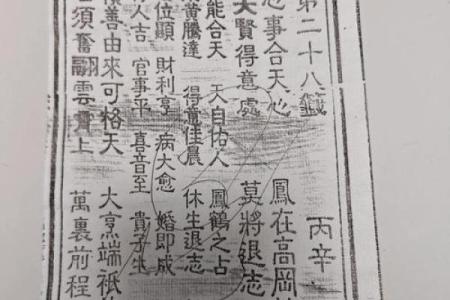 第二十八籤 丙辛
事合天心 鳳在高岡
賢得意處 莫將退志
能合天 天自佑人 鳳鶴之占
黃騰達 得意佳晨 休生退志
位顯 財利亨 病大愈 婚即成
人吉 官事平 喜音至 貴子生
善由來可格天 大烹端祇
須奮翮雲霄上 萬裏前程